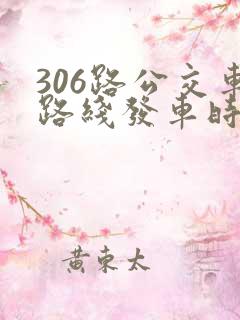 306路公交車
路綫發車時
黄東太